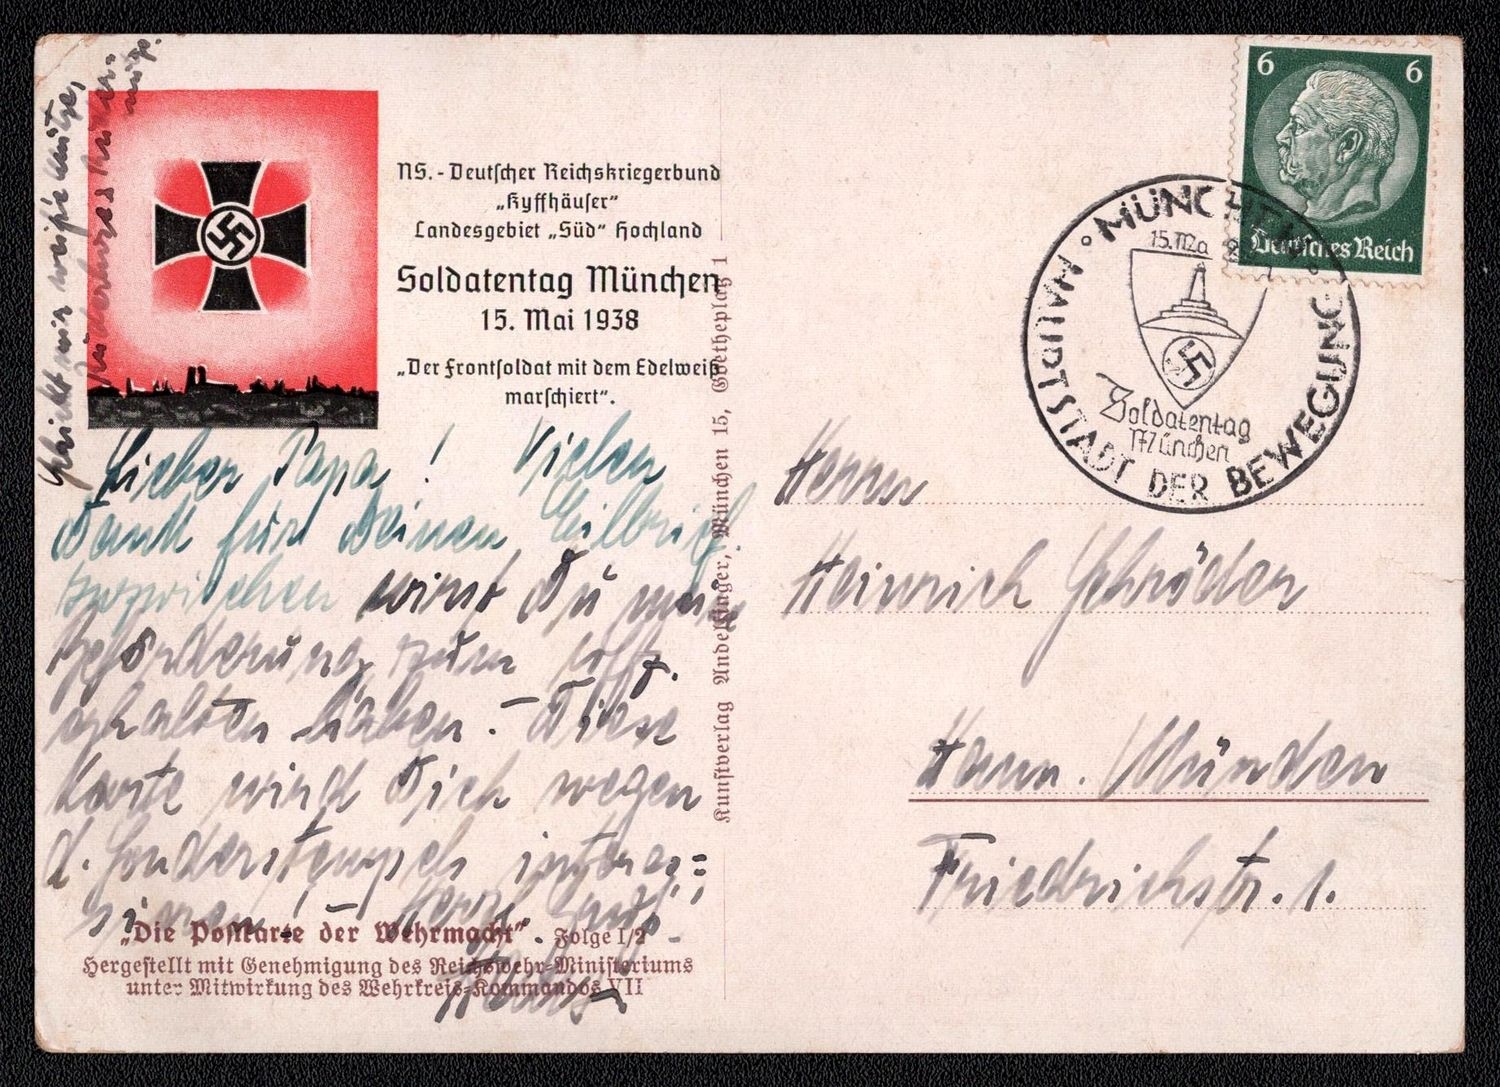 schickt mir weiße Mütze,
NS.-Deutscher Reichskriegerbund
„Kyffhäuser“
Landesgebiet „Süd“ Hochland
Soldatentag München
15. Mai 1938
„Der Frontsoldat mit dem Edelweiß
marschiert“.
Lieber Papa! Vielen
Dank für Deinen Eilbrief.
Inzwischen wirst Du meine
Beförderung zum Uffz.
erhalten haben. – Diese
Karte wird Dich wegen
d. Sonderstempels interes=
sieren! – Herzl. Gruß
„Die Postkarte der Wehrmacht“. Folge I/2
Hergestellt mit Genehmigung des Reichswehr-Ministeriums
unter Mitwirkung des Wehrkreis-Kommandos VII
Kunstverlag Andelfinger, München 15, Goetheplatz 1
6 6
Deutsches Reich
MÜNCHEN
HAUPTSTADT DER BEWEGUNG
15. Mai
Soldatentag
München
Herrn
Heinrich Schröder
Hann. Münden
Friedrichstr. 1.